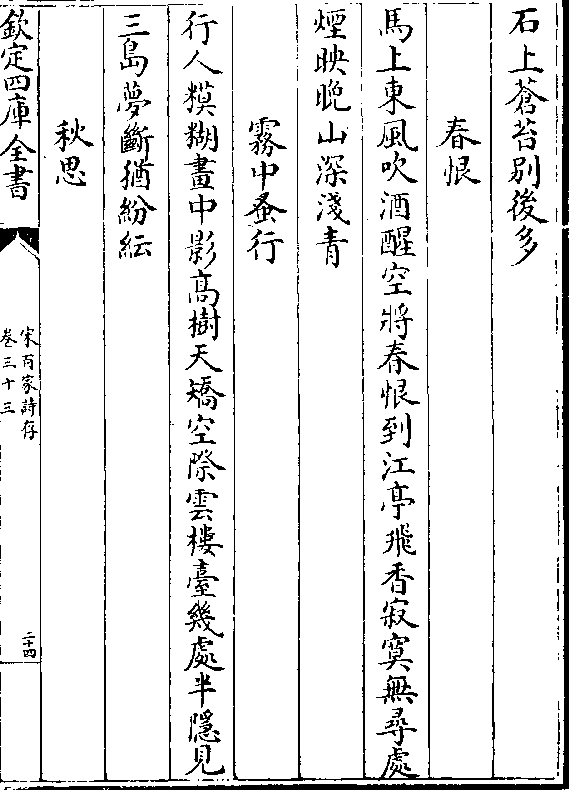 石上蒼苔别後多
春恨
馬上東風吹酒醒空將春恨到江亭飛香寂寞無尋處
煙映晚山深淺青
霧中蚤行
行人糢糊畫中影髙樹天矯空際雲樓臺幾處半隱見
三島夢斷猶紛紜
秋思
欽定四庫全書
宋百家詩存
卷三十三
二十四